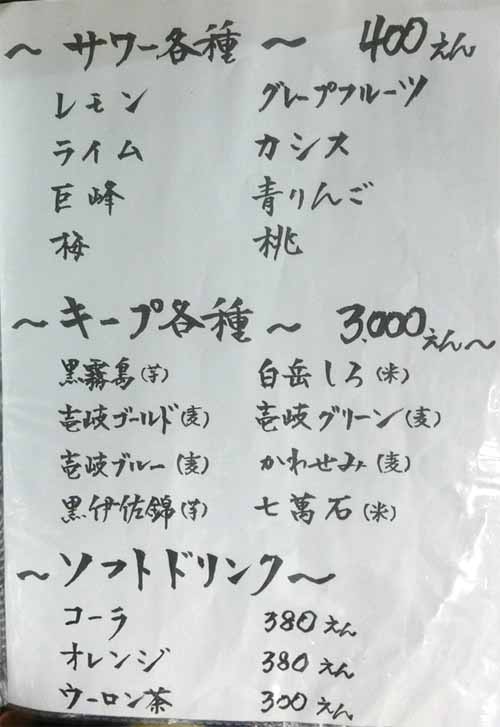 ～ サワー各種 ～ 400えん
レモン グレープフルーツ
ライム カシス
巨峰 青りんご
梅 桃
～ キープ各種 ～ 3,000えん～
黒霧島(芋) 白岳しろ(米)
壱岐ゴールド(麦) 壱岐グリーン(麦)
壱岐ブルー(麦) かわせみ(麦)
黒伊佐錦(芋) 七萬石(米)
～ソフトドリンク～
コーラ 380えん
オレンジ 380えん
ウーロン茶 300えん